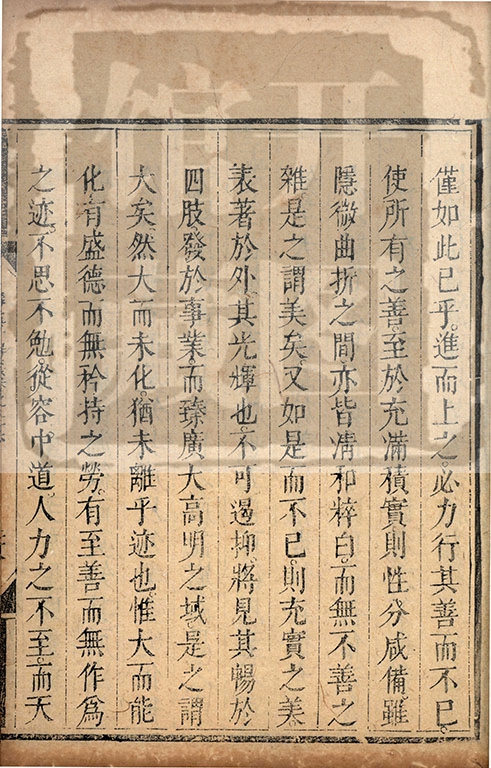 僅如此已乎。進而上之。必力行其善而不已。
使所有之善。至於充滿積實。則性分咸備。雖
隱微曲折之間。亦皆清和粹白。而無不善之
雜。是之謂美矣。又如是而不已。則充實之美。
表著於外。其光輝也。不可遏抑。將見其暢於
四肢。發於事業。而臻廣大高明之域。是之謂
大矣。然大而未化。猶未離乎迹也。惟大而能
化。有盛德而無矜持之勞。有至善而無作為
之迹。不思不勉。從容中道。人力之不至。而天